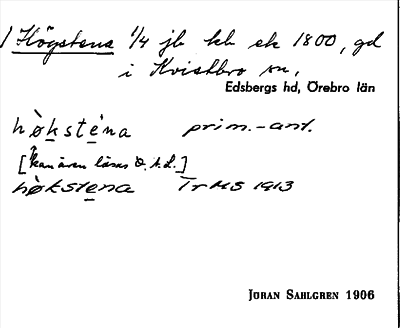 / Högstena 1/4 jb kb sk 1800, gd
i Kvistbro sn,
Edsbergs hd, Örebro län
hø̀kste̍na prim.-ant.
[kan även läsas
hø̀kstena TrMS 1913
JÖRAN SAHLGREN 1906